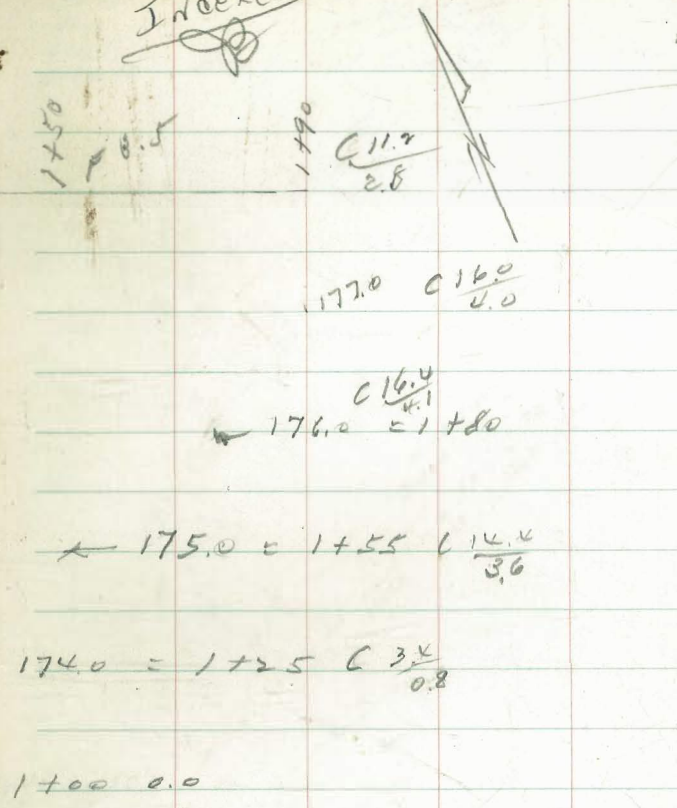 1+50
0.5
1+90
C 11.2
2.8
177.0 C 16.0
4.0
C 16.4
4.1
176.0 = 1+80
175.0 = 1+55 C 14.4
3.6
174.0 = 1+25 C 3.4
0.8
1+00 0.0